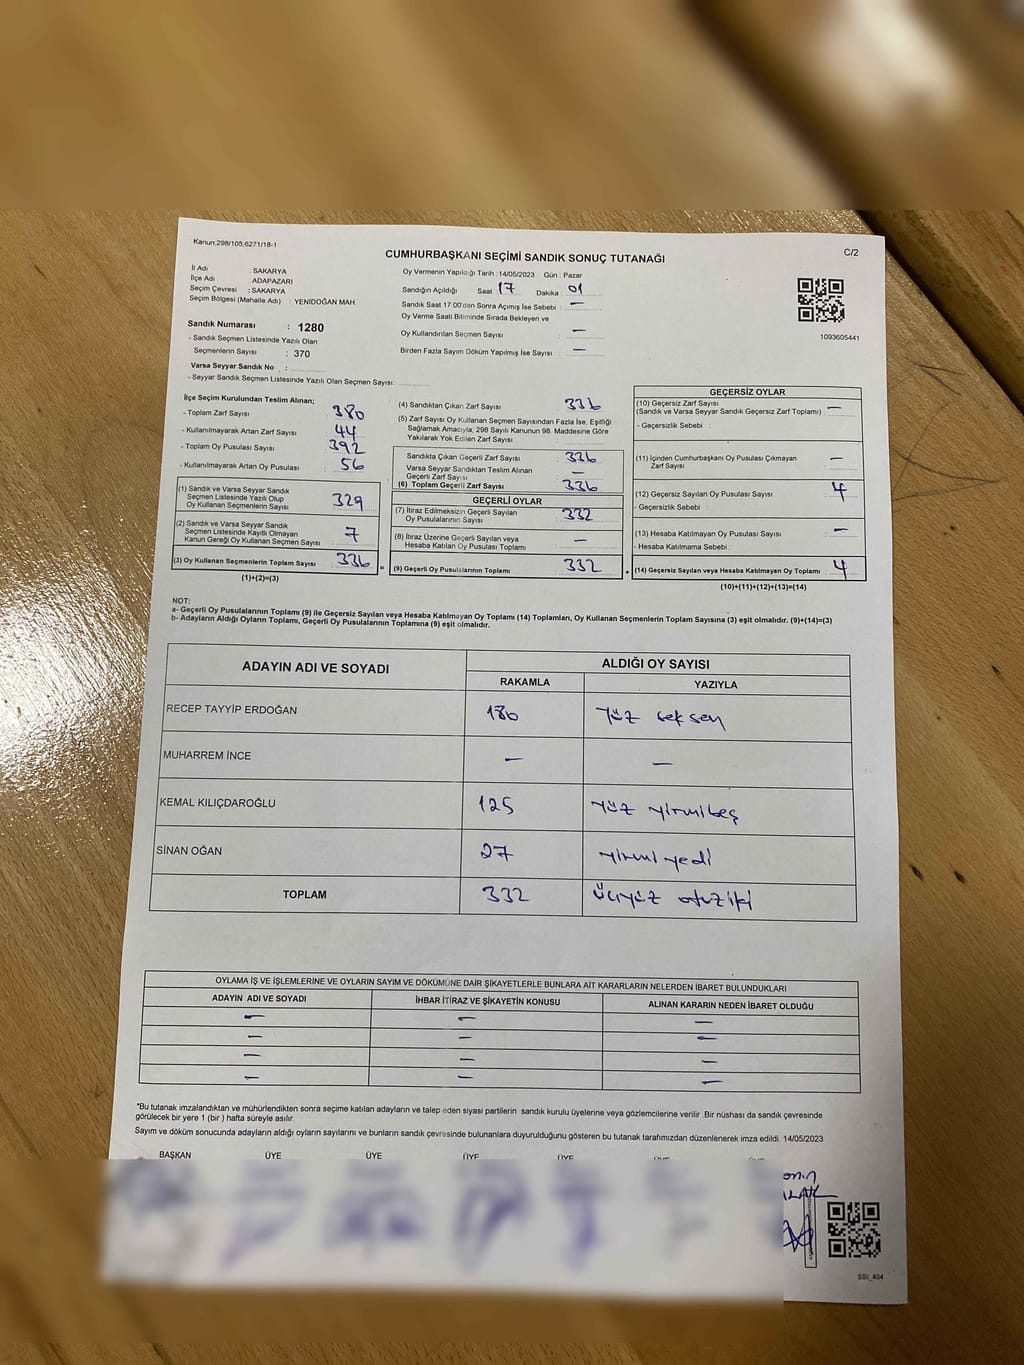 Kanun:298/105;6271/18-1
CUMHURBAŞKANI SEÇİMİ SANDIK SONUÇ TUTANAĞI
C/2
İl Adı : SAKARYA
İlçe Adı : ADAPAZARI
Seçim Çevresi : SAKARYA
Seçim Bölgesi (Mahalle Adı) : YENİDOĞAN MAH.
Sandık Numarası : 1280
- Sandık Seçmen Listesinde Yazılı Olan
Seçmenlerin Sayısı : 370
Varsa Seyyar Sandık No :
- Seyyar Sandık Seçmen Listesinde Yazılı Olan Seçmen Sayısı:
Oy Vermenin Yapıldığı Tarih : 14/05/2023 Gün : Pazar
Sandığın Açıldığı Saat 17 Dakika 01
Sandık Saat 17:00'dan Sonra Açımış İse Sebebi : —
Oy Verme Saati Bitiminde Sırada Bekleyen ve
Oy Kullandırılan Seçmen Sayısı —
Birden Fazla Sayım Döküm Yapılmış İse Sayısı : —
1093605441
İlçe Seçim Kurulundan Teslim Alınan;
- Toplam Zarf Sayısı : 380
- Kullanılmayarak Artan Zarf Sayısı : 44
- Toplam Oy Pusulası Sayısı : 392
- Kullanılmayarak Artan Oy Pusulası : 56
(1) Sandık ve Varsa Seyyar Sandık
Seçmen Listesinde Yazılı Olup
Oy Kullanan Seçmenlerin Sayısı 329
(2) Sandık ve Varsa Seyyar Sandık
Seçmen Listesinde Kayıtlı Olmayan
Kanun Gereği Oy Kullanan Seçmen Sayısı 7
(3) Oy Kullanan Seçmenlerin Toplam Sayısı 336
(1)+(2)=(3)
(4) Sandıktan Çıkan Zarf Sayısı : 336
(5) Zarf Sayısı Oy Kullanan Seçmen Sayısından Fazla İse, Eşitliği
Sağlamak Amacıyla; 298 Sayılı Kanunun 98. Maddesine Göre
Yakılarak Yok Edilen Zarf Sayısı
Sandıkta Çıkan Geçerli Zarf Sayısı : 336
Varsa Seyyar Sandıktan Teslim Alınan
Geçerli Zarf Sayısı : —
(6) Toplam Geçerli Zarf Sayısı : 336
GEÇERLİ OYLAR
(7) İtiraz Edilmeksizin Geçerli Sayılan
Oy Pusulalarının Sayısı : 332
(8) İtiraz Üzerine Geçerli Sayılan veya
Hesaba Katılan Oy Pusulası Toplamı : —
(9) Geçerli Oy Pusulalarının Toplamı 332
GEÇERSİZ OYLAR
(10) Geçersiz Zarf Sayısı
(Sandık ve Varsa Seyyar Sandık Geçersiz Zarf Toplamı) —
- Geçersizlik Sebebi :
(11) İçinden Cumhurbaşkanı Oy Pusulası Çıkmayan
Zarf Sayısı : —
(12) Geçersiz Sayılan Oy Pusulası Sayısı : 4
- Geçersizlik Sebebi :
(13) Hesaba Katılmayan Oy Pusulası Sayısı : —
- Hesaba Katılmama Sebebi :
(14) Geçersiz Sayılan veya Hesaba Katılmayan Oy Toplamı : 4
(10)+(11)+(12)+(13)=(14)
NOT:
a- Geçerli Oy Pusulalarının Toplamı (9) ile Geçersiz Sayılan veya Hesaba Katılmayan Oy Toplamı (14) Toplamları, Oy Kullanan Seçmenlerin Toplam Sayısına (3) eşit olmalıdır. (9)+(14)=(3)
b- Adayların Aldığı Oyların Toplamı, Geçerli Oy Pusulalarının Toplamına (9) eşit olmalıdır.
ADAYIN ADI VE SOYADI ALDIĞI OY SAYISI
RAKAMLA YAZIYLA
RECEP TAYYİP ERDOĞAN 180 Yüz seksen
MUHARREM İNCE — —
KEMAL KILIÇDAROĞLU 125 Yüz yirmibeş
SİNAN OĞAN 27 yirmi yedi
TOPLAM 332 üçyüz otuziki
OYLAMA İŞ VE İŞLEMLERİNE VE OYLARIN SAYIM VE DÖKÜMÜNE DAİR ŞİKAYETLERLE BUNLARA AİT KARARLARIN NELERDEN İBARET BULUNDUKLARI
ADAYIN ADI VE SOYADI İHBAR İTİRAZ VE ŞİKAYETİN KONUSU ALINAN KARARIN NEDEN İBARET OLDUĞU
— — —
— — —
— — —
— — —
*Bu tutanak imzalandıktan ve mühürlendikten sonra seçime katılan adayların ve talep eden siyasi partilerin sandık kurulu üyelerine veya gözlemcilerine verilir. Bir nüshası da sandık çevresinde
görülecek bir yere 1 (bir ) hafta süreyle asılır.
Sayım ve döküm sonucunda adayların aldığı oyların sayılarını ve bunların sandık çevresinde bulunanlara duyurulduğunu gösteren bu tutanak tarafımızdan düzenlenerek imza edildi. 14/05/2023
BAŞKAN ÜYE ÜYE ÜYE ÜYE
SSI_404